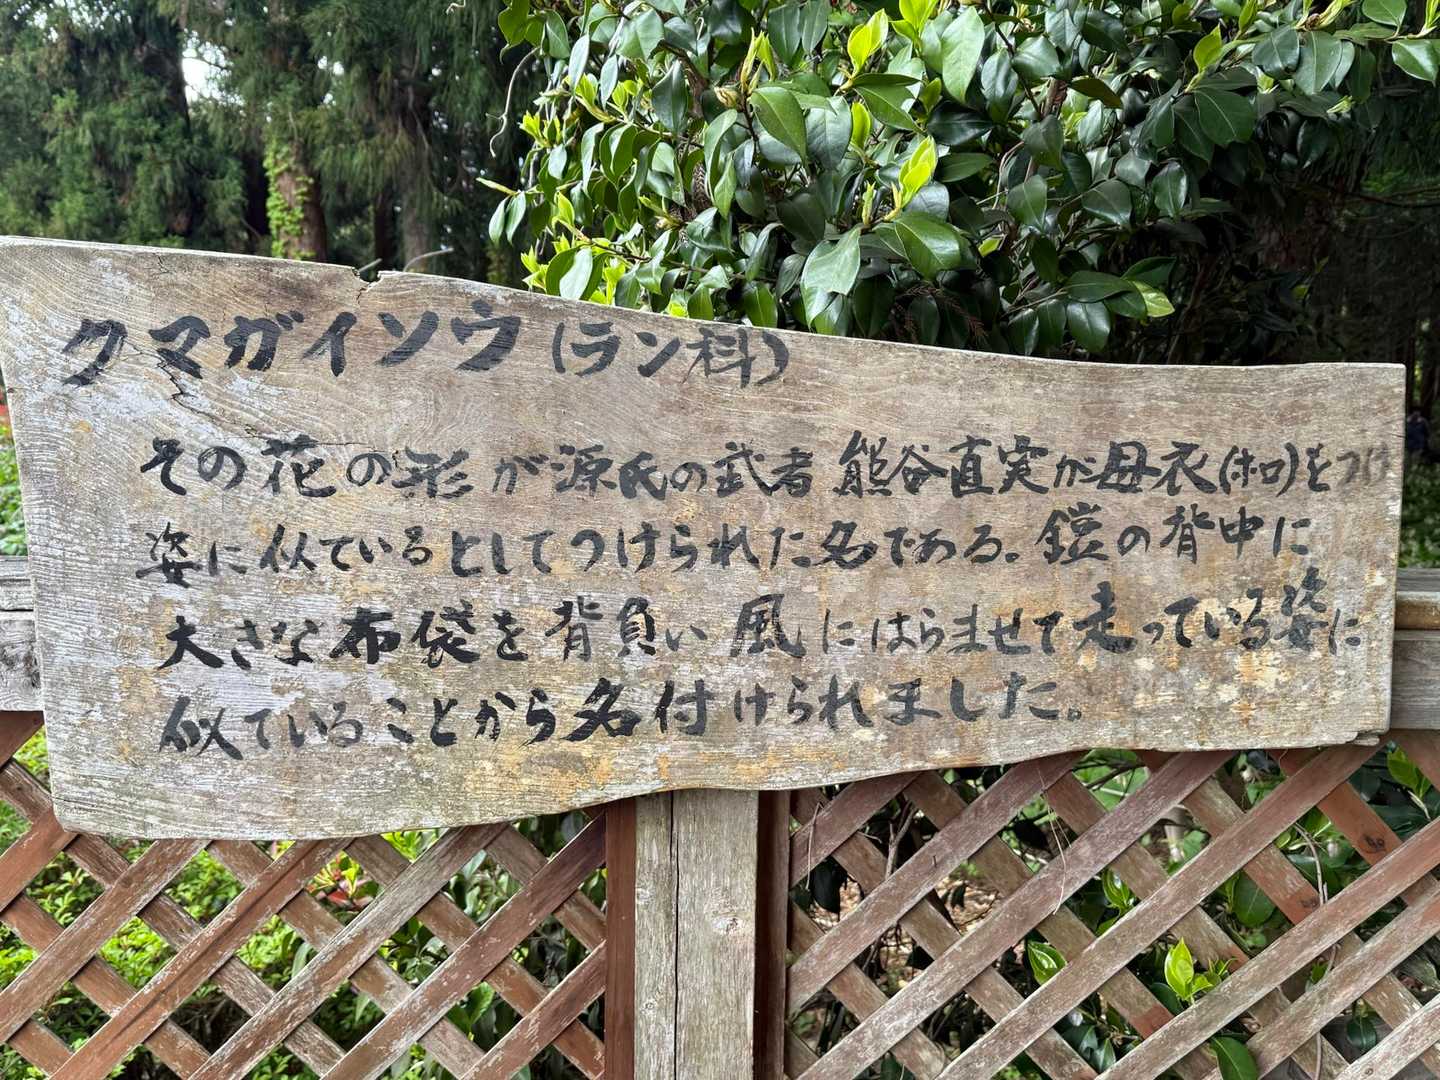 クマガイソウ(ラン科)
その花の形が源氏の武者 熊谷直実が母衣(ホロ)をつけ
姿に似ているとしてつけられた名である。鎧の背中に
大きな布袋を背負い風にはらませて走っている姿に
似ていることから名付けられました。